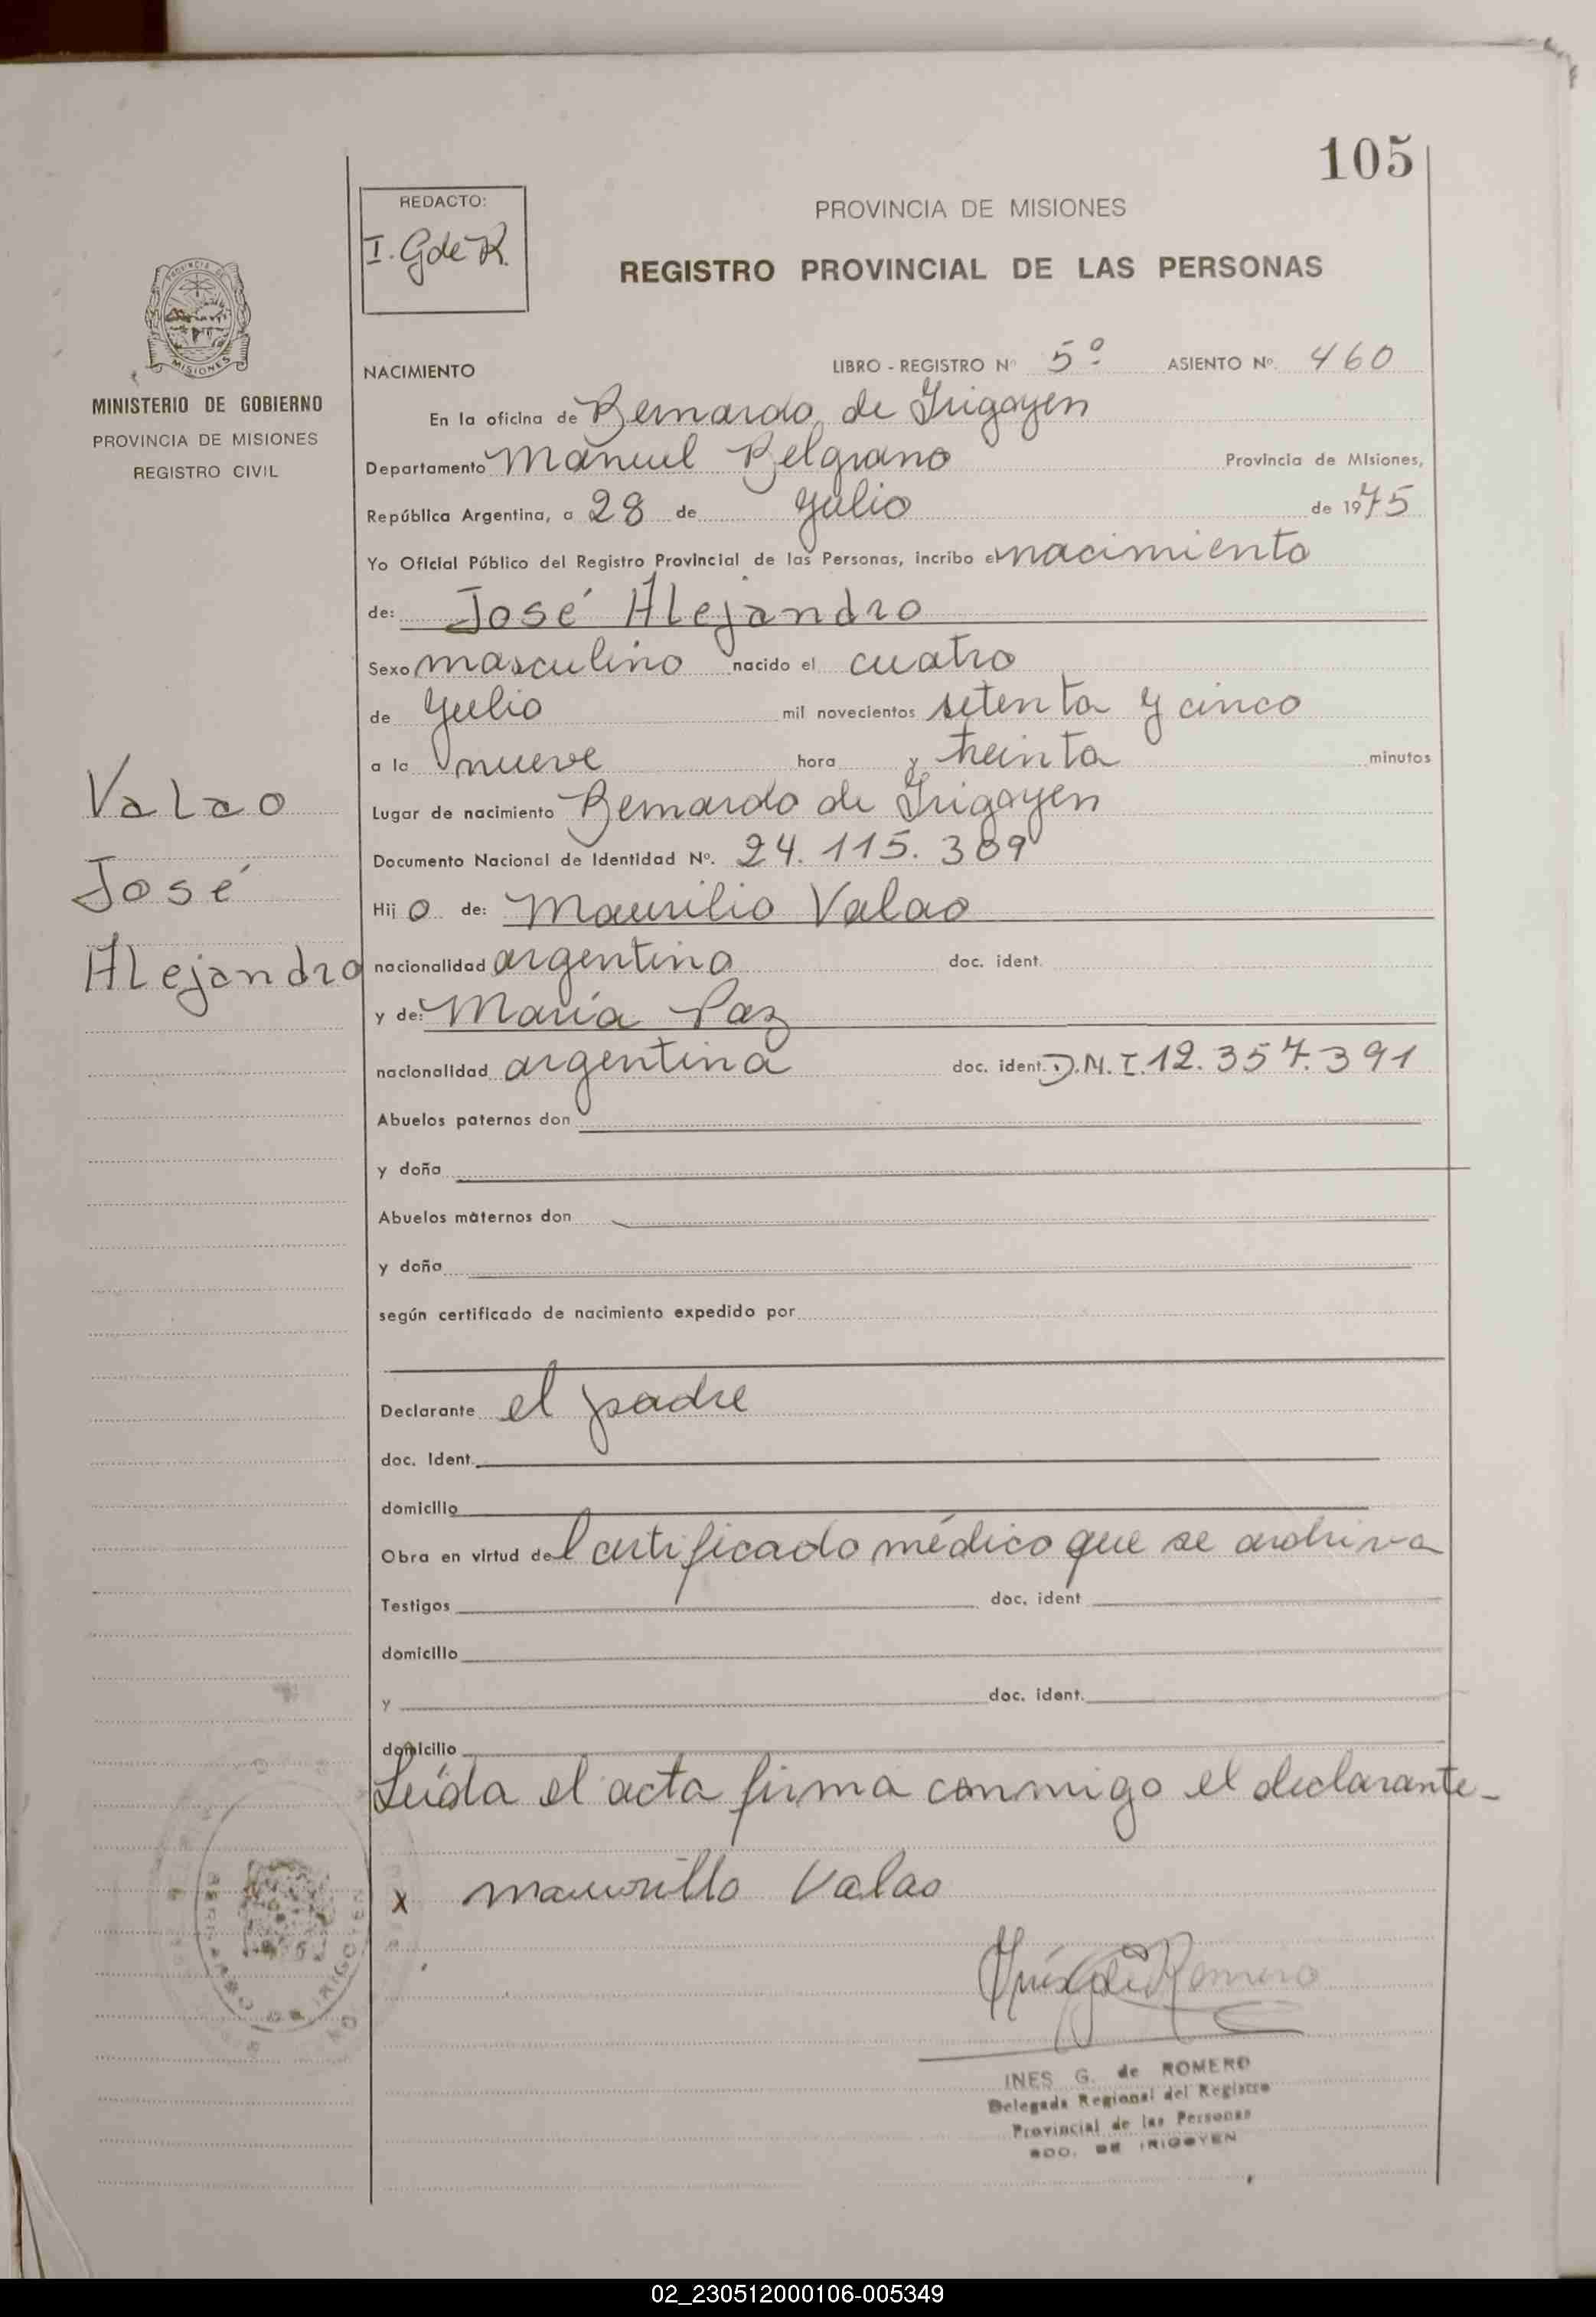 105
REDACTO:
I. G de R.
PROVINCIA DE MISIONES
REGISTRO PROVINCIAL DE LAS PERSONAS
MISIONES
MINISTERIO DE GOBIERNO
PROVINCIA DE MISIONES
REGISTRO CIVIL
NACIMIENTO LIBRO - REGISTRO Nº 5º ASIENTO Nº. 460
En la oficina de Bernardo de Irigoyen
Departamento Manuel Belgrano Provincia de Misiones,
República Argentina, a 28 de Julio de 1975
Yo Oficial Público del Registro Provincial de las Personas, incribo el nacimiento
de: José Alejandro
Sexo masculino nacido el cuatro
de Julio mil novecientos setenta y cinco
a la nueve hora y treinta minutos
Lugar de nacimiento Bernardo de Irigoyen
Documento Nacional de Identidad Nº. 24.115.309
Hij o de: Maurilio Valao
nacionalidad argentina doc. ident.
y de: María Paz
nacionalidad argentina doc. ident. D.N.I. 12.357.391
Valao
José
Alejandro
Abuelos paternos don
y doña
Abuelos maternos don
y doña
según certificado de nacimiento expedido por
Declarante el padre
doc. Ident.
domicilio
Obra en virtud del certificado médico que se archiva
Testigos doc. ident
domicilio
y doc. ident.
domicilio
Leída el acta firma conmigo el declarante-
x maurillo Valao
Inés G de Romero
INES G. de ROMERO
Delegada Regional del Registro
Provincial de las Personas
BDO. DE IRIGOYEN
02_230512000106-005349